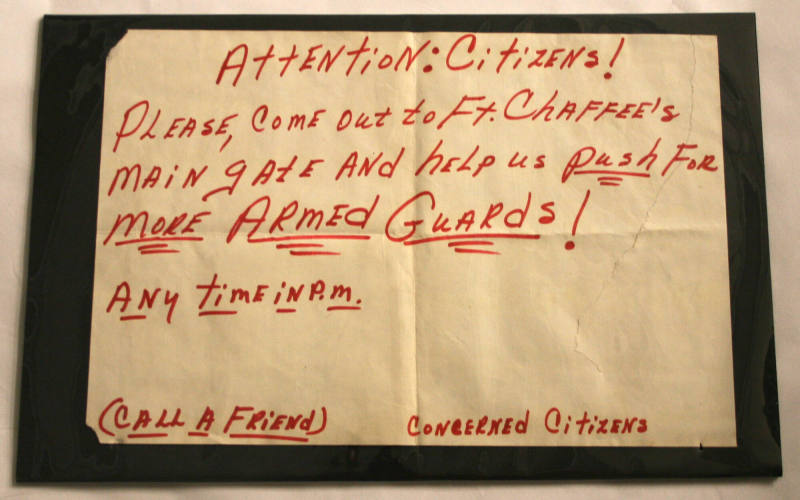 ATTENTION: CITIZENS!
PLEASE, COME OUT TO FT. CHAFFEE'S
MAIN GATE AND HELP US PUSH FOR
MORE ARMED GUARDS!
ANY TIME IN P.M.
(CALL A FRIEND) CONCERNED CITIZENS